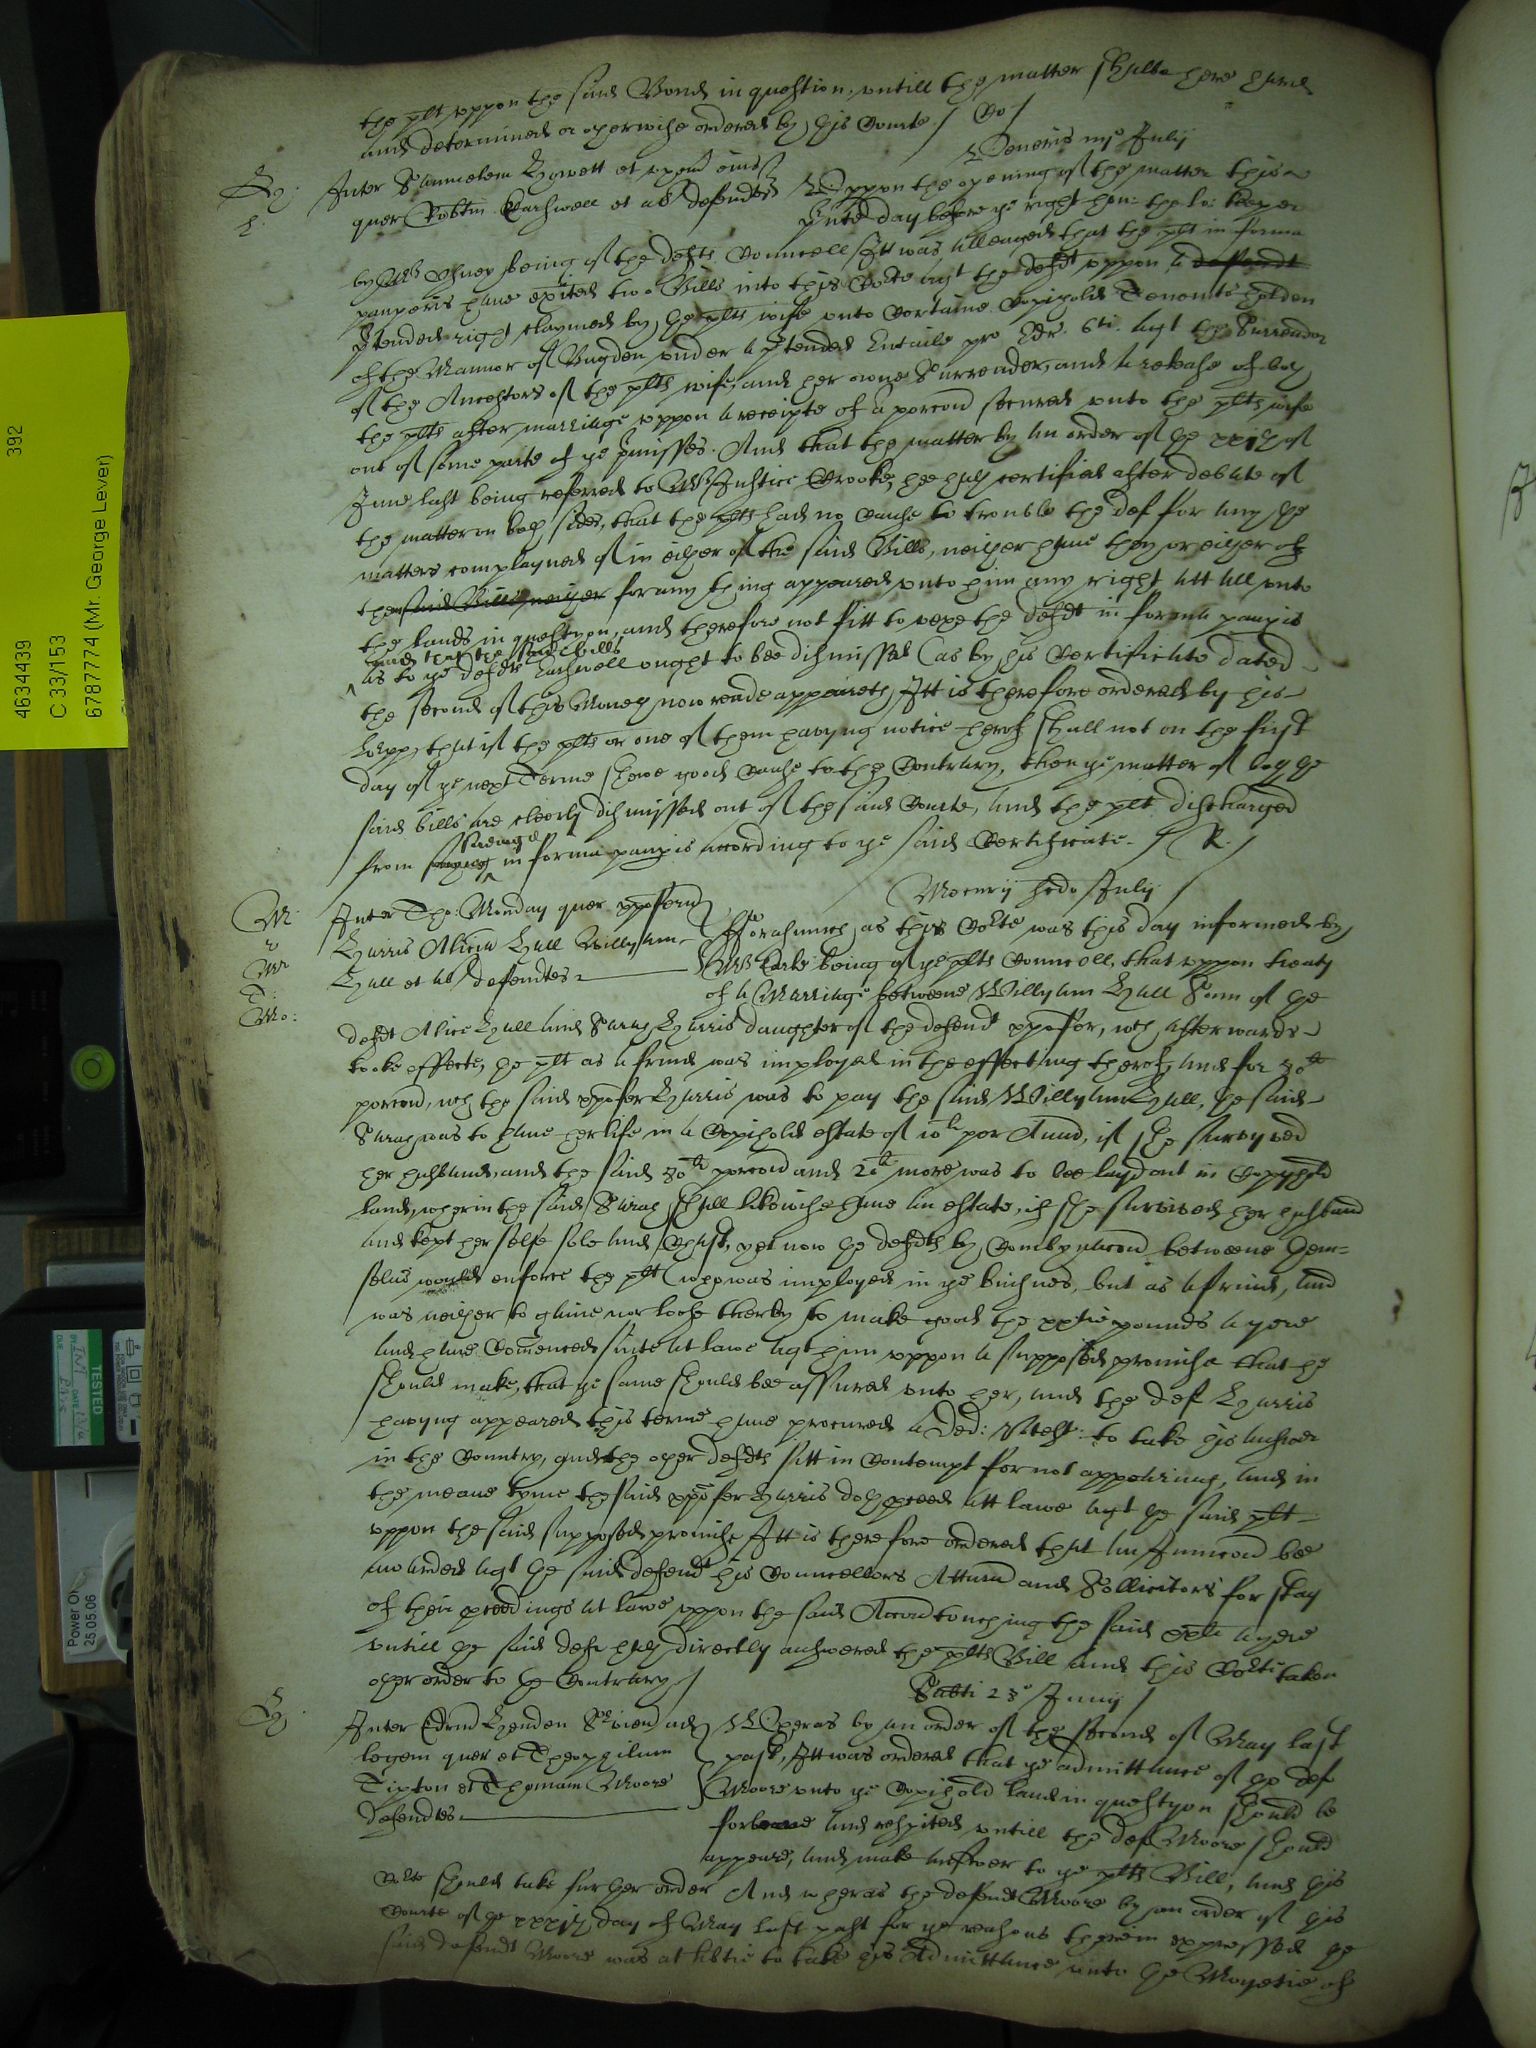 the plt uppon the said Bond in question, untill the matter shalbe here heard
and determined or otherwise ordered by this Courte /
Veneris July
Inter Samuelem Hewett et uxem eius
quer Robtm Carswell et al defendtes
Uppon the opening of the matter this
day before the right hon: the lo: keeper
by Mr being of the defts Councell Itt was alleaged that the plt in forma
pauperis have exited two Bills into this Cote agt the defdt uppon a defendt
ptended right claymed by the plts wife unto Certaine Copihold Tenemts holden
of the Mannor of Bugden under a ptended Entaile agt the Surrender
of the Ancestors of the plts wife, and her owne Surrender, and a release of
the plts after marriage uppon a receipte of a porcon secured unto the plts wife
out of some parte of the pmisses. And that the matter by an order of the xxijth of
June last being referred to Mr Justice Crooke, hee hath certified after debate of
the matter on both sides, that the plts had no Cause to trouble the def for any the
matters complayned of in either of the said Bills, neither have they or either of
them said Bills neither for any thing appeared unto him any right att all unto
the lands in question, and therefore not fitt to vexe the defdt in forma paupis
and that the said bills
as to the defdt Carswell ought to bee dismissed (as by his Certificate dated
the second of this Moneth now reade appeareth, Itt is therefore ordered by his
Lopp, that if the plts or one of them having notice hereof shall not on the first
day of the next Terme shewe good Cause to the Contrary, then the matter of both the
said bills are cleerly dismissed out of the said Courte, and the plt discharged
from suing in forma paupis according to the said Certificate. / R. /
Mercurij July /
Inter Tho: Monday quer xpoferum
Harris Aliciam Hall Willyam
Hall et al defendtes
Forasmuch as this Cote was this day informed by
Mr being of the plts Councell, that uppon treaty
of a Marriage betweene Willyam Hall Sonn of the
defdt Alice Hall and Sarah Harris daughter of the defendt xpofer, wch afterwards
tooke effecte, the plt as a frend was imployed in the effecting thereof, and for 80li
porcon, wch the said xpofer Harris was to pay the said Willyam Hall, the said
Sarah was to have her life in a Copihold estate of 10li per Annu, if she survyved
her husband, and the said 80li porcon and 20li more was to bee layd out in Copyhold
land, wherin the said Sarah shall likewise have an estate, if she survived her husband
and kept her selfe sole and Chast, yet now the defdts by Combynacon betweene them-
selves would enforce the plt (who was imployed in the busines, but as a frend, and
was neither to gaine nor loose therby to make good the xxtie pounds a yere
and have Comenced suite at lawe agt him uppon a supposed promise that he
should make, that the same should bee assured unto her, and the def Harris
having appeared this terme have procured a Ded: Potest: to take his answer
in the Country, and the other defdts sitt in Contempt for not appearing, and in
the meane tyme the said xpofer Harris doth pceed att lawe agt the said plt
uppon the said supposed promise Itt is therefore ordered that an Iniuncon bee
awarded agt the said defendt his Councellors Atturn and Sollicitors for stay
of their pceedings at lawe uppon the said Accon touching the said xxli a yere
untill the said defs hath directly answered the plts Bill and this Cote taken
other order to the Contrary /
Sabti 23o Junij /
Inter Edrm Henden Svien ad
legem quer et Theophilum
Tipton et Thomam Moore
defendtes
Wheras by an order of the second of May last
past, Itt was ordered that the admittance of the def
Moore unto the Copihold land in question should be
forborne and respited untill the def Moore should
appeare, and make answer to the plts Bill, and this
Cote should take further order And wheras the defendt Moore by an order of this
Courte of the day of May last past for the reasons therein expressed the
said defendt Moore was at libtie to take his Admittance unto the Moyetie of
392
4634439
C 33/153
6787774 (Mr. George Lever)
TESTED
Power On
25.05.06